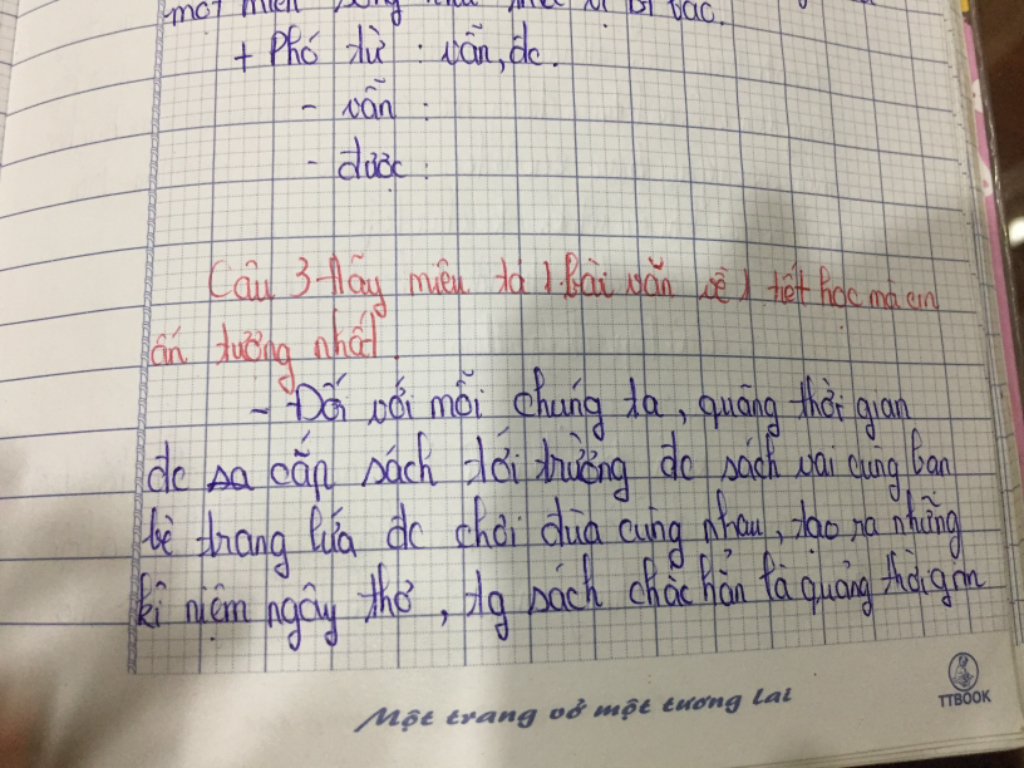 một miền sông như thế vì bí bác.
+ Phó từ : vẫn, đc.
- vẫn :
- được :
Câu 3 Hãy miêu tả 1 bài văn về 1 tiết học mà em
ấn tường nhất.
- Đối với mỗi chúng ta, quãng thời gian
đc sa cắp sách tới trường đc sách vai cùng bạn
bè trang lứa đc chơi đùa cùng nhau, tạo ra những
kỉ niệm ngây thơ, tg sách chắc hẳn là quảng thời gian
Một trang vở một tương lai
TTBOOK